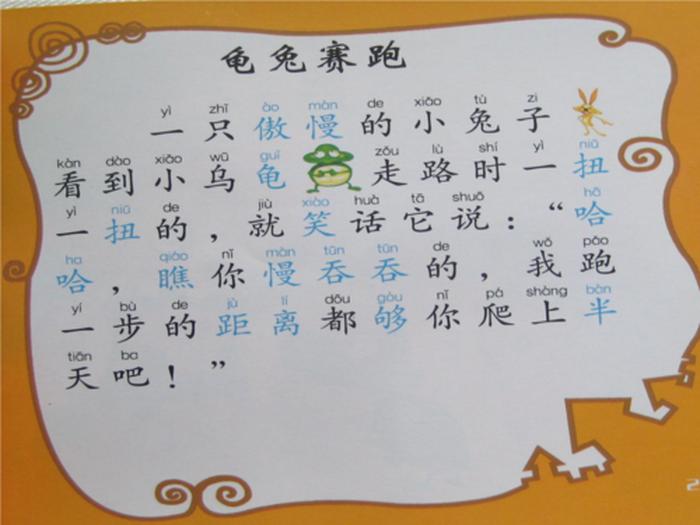 龟兔赛跑
yì zhī ào màn de xiǎo tù zi
一只傲慢的小兔子
kàn dào xiǎo wū guī zǒu lù shí yì niǔ
看到小乌龟走路时一扭
yì niǔ de jiù xiào huà tā shuō hā
一扭的，就笑话它说：“哈
ha qiáo nǐ màn tūn tūn de wǒ pǎo
哈，瞧你慢吞吞的，我跑
yí bù de jù lí dōu gòu nǐ pá shàng bàn
一步的距离都够你爬上半
tiān ba
天吧！”
2